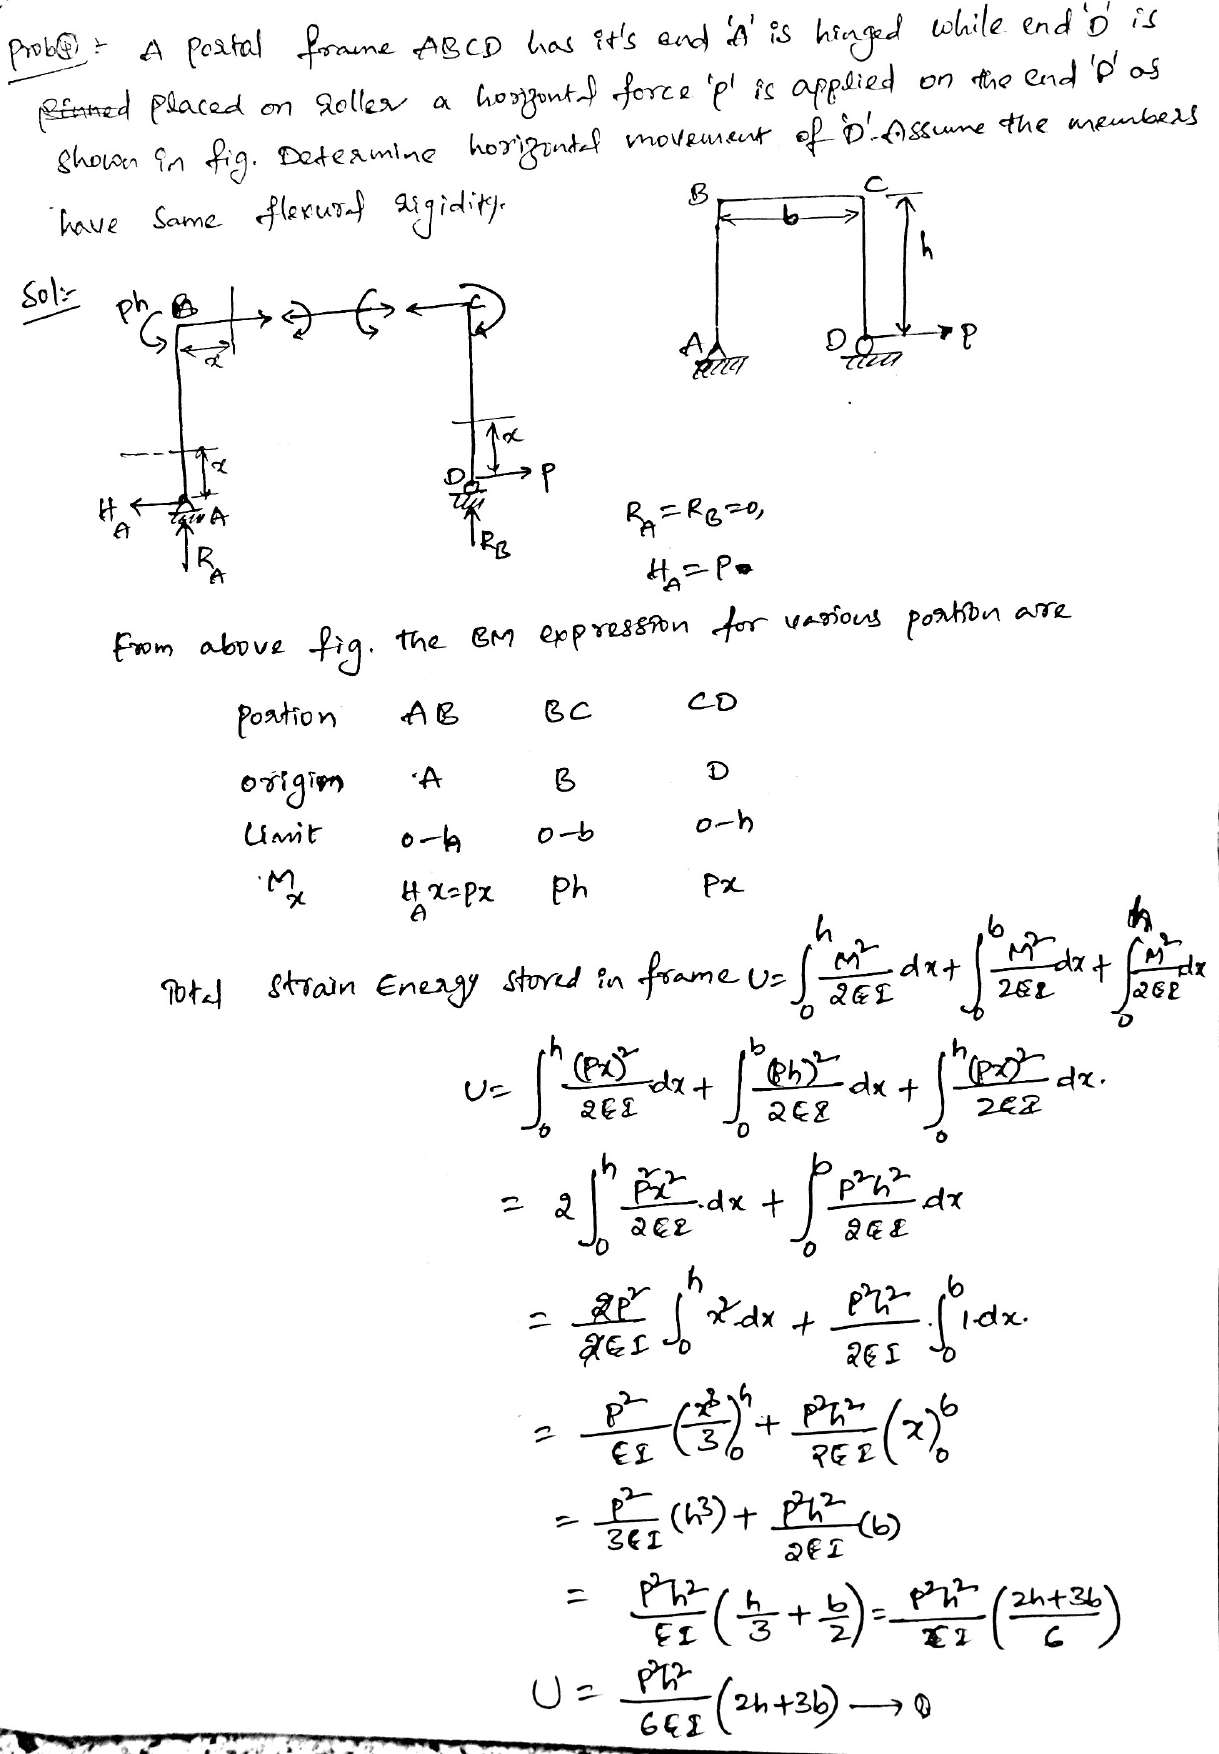 Prob④ :- A Portal frame ABCD has it's end 'A' is hinged while end 'D' is
placed on roller a horizontal force 'P' is applied on the end 'D' as
shown in fig. Determine horizontal movement of 'D'. Assume the members
have same flexural rigidity.
B C
b
h
A D P
Sol:-
Ph B C
x
x x
D P
H_A A
R_A R_B
R_A = R_B = 0,
H_A = P
From above fig. the BM expression for various portion are
portion AB BC CD
origin A B D
Limit 0-h 0-b 0-h
M_x H_A x = Px Ph Px
Total strain Energy stored in frame U = ∫₀^h M²/2EI dx + ∫₀^b M²/2EI dx + ∫₀^h M²/2EI dx
U = ∫₀^h (Px)²/2EI dx + ∫₀^b (Ph)²/2EI dx + ∫₀^h (Px)²/2EI dx.
= 2 ∫₀^h P²x²/2EI .dx + ∫₀^b P²h²/2EI dx
= 2P²/2EI ∫₀^h x² dx + P²h²/2EI . ∫₀^b 1.dx.
= P²/EI (x³/3)₀^h + P²h²/2EI (x)₀^b
= P²/3EI (h³) + P²h²/2EI (b)
= P²h²/EI (h/3 + b/2) = P²h²/EI (2h+3b/6)
U = P²h²/6EI (2h+3b) → ①